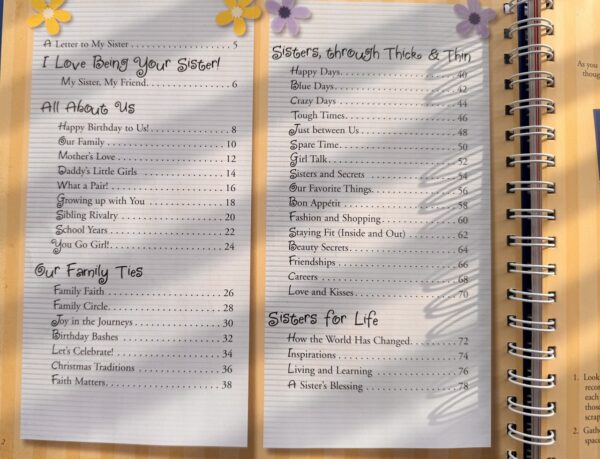 A Letter to My Sister . . . . . . . . . . . . . . . . . 5
I Love Being Your Sister!
My Sister, My Friend. . . . . . . . . . . . . . . 6
All About Us
Happy Birthday to Us! . . . . . . . . . . . . . . 8
Our Family . . . . . . . . . . . . . . . . . . . . . 10
Mother's Love . . . . . . . . . . . . . . . . . . . 12
Daddy's Little Girls . . . . . . . . . . . . . . . 14
What a Pair! . . . . . . . . . . . . . . . . . . . . 16
Growing up with You . . . . . . . . . . . . . . 18
Sibling Rivalry . . . . . . . . . . . . . . . . . . 20
School Years . . . . . . . . . . . . . . . . . . . 22
You Go Girl! . . . . . . . . . . . . . . . . . . . . 24
Our Family Ties
Family Faith . . . . . . . . . . . . . . . . . . . 26
Family Circle. . . . . . . . . . . . . . . . . . . 28
Joy in the Journeys . . . . . . . . . . . . . . . 30
Birthday Bashes . . . . . . . . . . . . . . . . . 32
Let's Celebrate! . . . . . . . . . . . . . . . . . 34
Christmas Traditions . . . . . . . . . . . . . . 36
Faith Matters. . . . . . . . . . . . . . . . . . . 38
2
Sisters, through Thick & Thin
Happy Days. . . . . . . . . . . . . . . . . . . . 40
Blue Days. . . . . . . . . . . . . . . . . . . . . 42
Crazy Days . . . . . . . . . . . . . . . . . . . . 44
Tough Times . . . . . . . . . . . . . . . . . . . 46
Just between Us . . . . . . . . . . . . . . . . . 48
Spare Time . . . . . . . . . . . . . . . . . . . . 50
Girl Talk. . . . . . . . . . . . . . . . . . . . . . 52
Sisters and Secrets . . . . . . . . . . . . . . . 54
Our Favorite Things. . . . . . . . . . . . . . . 56
Bon Appétit . . . . . . . . . . . . . . . . . . . 58
Fashion and Shopping . . . . . . . . . . . . . 60
Staying Fit (Inside and Out) . . . . . . . . . 62
Beauty Secrets . . . . . . . . . . . . . . . . . . 64
Friendships . . . . . . . . . . . . . . . . . . . . 66
Careers . . . . . . . . . . . . . . . . . . . . . . 68
Love and Kisses . . . . . . . . . . . . . . . . . 70
Sisters for Life
How the World Has Changed. . . . . . . . . 72
Inspirations . . . . . . . . . . . . . . . . . . . 74
Living and Learning . . . . . . . . . . . . . . 76
A Sister's Blessing . . . . . . . . . . . . . . . 78
As you
1. Look
each
2. Gath